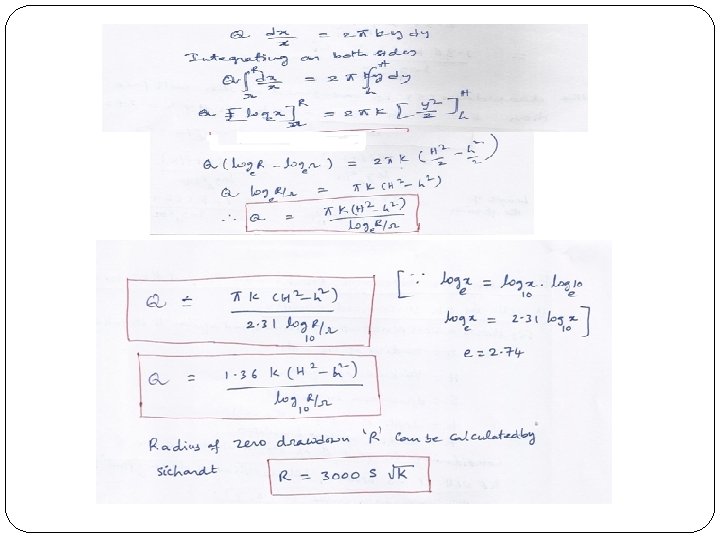 Q dx/x = 2π k y dy
Integrating on both sides
Q ∫_r^R dx/x = 2π k ∫_h^H y dy
Q [log_e x]_r^R = 2πK [y²/2]_h^H
Q (log_e R - log_e r) = 2πk (H²/2 - h²/2)
Q log_e R/r = πk (H² - h²)
∴ Q = πK(H² - h²) / log_e R/r
Q = πK (H² - h²) / 2.31 log_10 R/r [∵ log_e x = log_10 x . log_e 10
log_e x = 2.31 log_10 x]
e = 2.74
Q = 1.36 K (H² - h²) / log_10 R/r
Radius of zero drawdown 'R' Can be calculated by
sichardt R = 3000 S √K